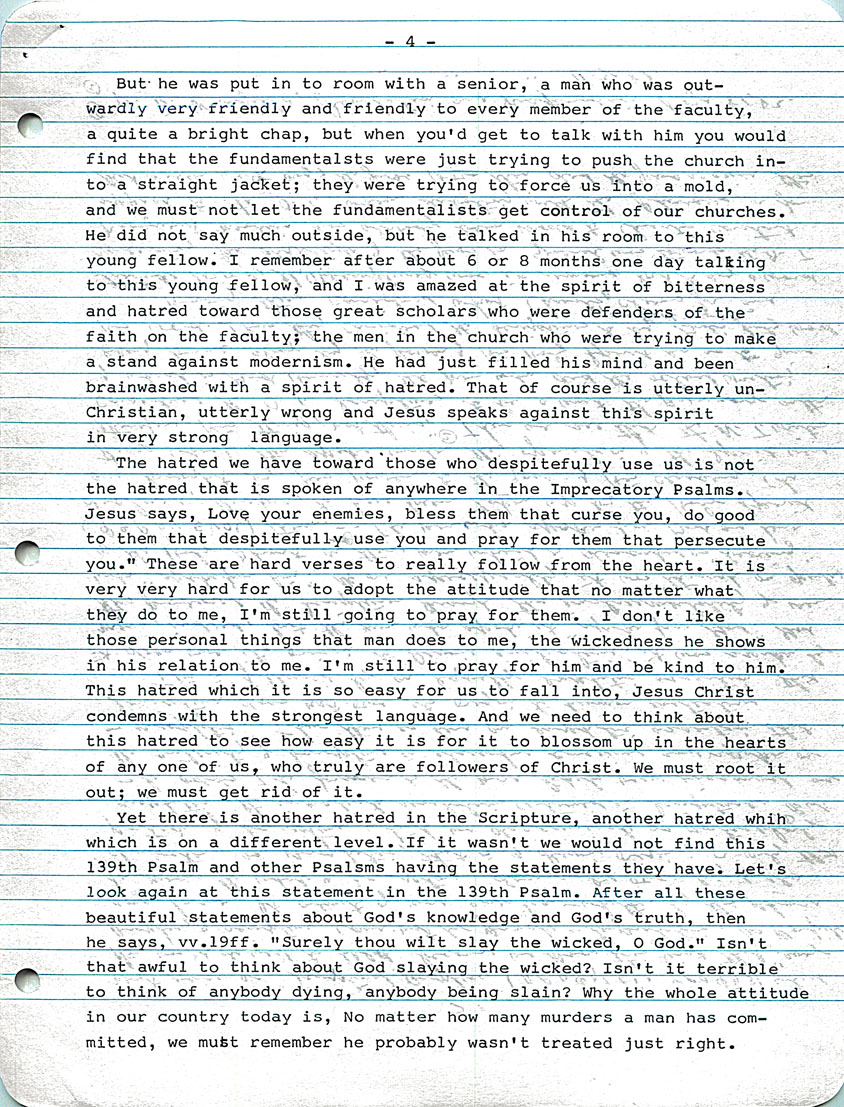 - 4 -
But he was put in to room with a senior, a man who was out-
wardly very friendly and friendly to every member of the faculty,
a quite a bright chap, but when you'd get to talk with him you would
find that the fundamentalsts were just trying to push the church in-
to a straight jacket; they were trying to force us into a mold,
and we must not let the fundamentalists get control of our churches.
He did not say much outside, but he talked in his room to this
young fellow. I remember after about 6 or 8 months one day talking
to this young fellow, and I was amazed at the spirit of bitterness
and hatred toward those great scholars who were defenders of the
faith on the faculty; the men in the church who were trying to make
a stand against modernism. He had just filled his mind and been
brainwashed with a spirit of hatred. That of course is utterly un-
Christian, utterly wrong and Jesus speaks against this spirit
in very strong language.
The hatred we have toward those who despitefully use us is not
the hatred that is spoken of anywhere in the Imprecatory Psalms.
Jesus says, Love your enemies, bless them that curse you, do good
to them that despitefully use you and pray for them that persecute
you." These are hard verses to really follow from the heart. It is
very very hard for us to adopt the attitude that no matter what
they do to me, I'm still going to pray for them. I don't like
those personal things that man does to me, the wickedness he shows
in his relation to me. I'm still to pray for him and be kind to him.
This hatred which it is so easy for us to fall into, Jesus Christ
condemns with the strongest language. And we need to think about
this hatred to see how easy it is for it to blossom up in the hearts
of any one of us, who truly are followers of Christ. We must root it
out; we must get rid of it.
Yet there is another hatred in the Scripture, another hatred whih
which is on a different level. If it wasn't we would not find this
139th Psalm and other Psalsms having the statements they have. Let's
look again at this statement in the 139th Psalm. After all these
beautiful statements about God's knowledge and God's truth, then
he says, vv.19ff. "Surely thou wilt slay the wicked, O God." Isn't
that awful to think about God slaying the wicked? Isn't it terrible
to think of anybody dying, anybody being slain? Why the whole attitude
in our country today is, No matter how many murders a man has com-
mitted, we must remember he probably wasn't treated just right.